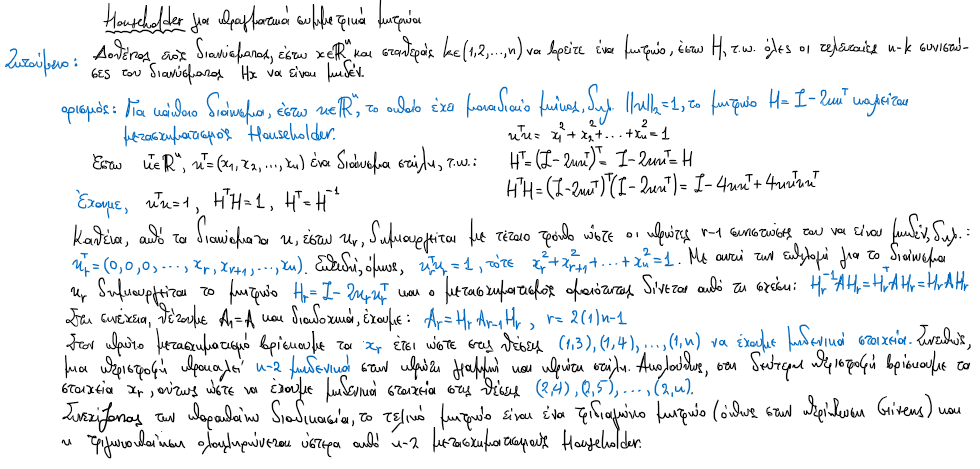 Householder για πραγματικά συμμετρικά μητρώα
Ζητούμενο: Δοθέντος ενός διανύσματος, έστω x∈ℝⁿ και σταθεράς k∈(1,2,...,n) να βρείτε ένα μητρώο, έστω H, τ.ω. όλες οι τελευταίες n-k συνιστώ-
σες του διανύσματος Hx να είναι μηδέν.
ορισμός: Για κάποιο διάνυσμα, έστω u∈ℝⁿ, το οποίο έχει μοναδιαίο μήκος, δηλ. ||u||₂=1, το μητρώο H = I - 2uuᵀ καλείται
μετασχηματισμός Householder.
uᵀu = x₁² + x₂² + ... + xₙ² = 1
Έστω uᵀ∈ℝⁿ, uᵀ=(x₁, x₂, ..., xₙ) ένα διάνυσμα στήλη, τ.ω.: Hᵀ = (I-2uuᵀ)ᵀ = I-2uuᵀ = H
HᵀH = (I-2uuᵀ)ᵀ(I-2uuᵀ) = I - 4uuᵀ + 4uuᵀuuᵀ
Έχουμε, uᵀu=1, HᵀH=1, Hᵀ=H⁻¹
Καθένα, από τα διανύσματα u, έστω uᵣ, δημιουργείται με τέτοιο τρόπο ώστε οι πρώτες r-1 συνιστώσες του να είναι μηδέν, δηλ.:
uᵣᵀ=(0,0,0,...,xᵣ,xᵣ₊₁,...,xₙ). Επειδή, όμως, uᵣᵀuᵣ = 1, τότε xᵣ² + xᵣ₊₁² + ... + xₙ² = 1. Με αυτή την επιλογή για το διάνυσμα
uᵣ δημιουργείται το μητρώο Hᵣ = I - 2uᵣuᵣᵀ και ο μετασχηματισμός ομοιότητας δίνεται από τη σχέση: Hᵣ⁻¹AHᵣ = HᵣᵀAHᵣ = HᵣAHᵣ
Στη συνέχεια, θέτουμε A₁=A και διαδοχικά, έχουμε: Aᵣ = HᵣAᵣ₋₁Hᵣ, r = 2(1)n-1
Στον πρώτο μετασχηματισμό βρίσκουμε τα xᵣ έτσι ώστε στις θέσεις (1,3),(1,4),...,(1,n) να έχουμε μηδενικά στοιχεία. Συνεπώς,
μια περιστροφή προκαλεί n-2 μηδενικά στην πρώτη γραμμή και πρώτη στήλη. Ακολούθως, στη δεύτερη περιστροφή βρίσκουμε τα
στοιχεία xᵣ, ούτως ώστε να έχουμε μηδενικά στοιχεία στις θέσεις (2,4),(2,5),...,(2,n).
Συνεχίζοντας την παραπάνω διαδικασία, το τελικό μητρώο είναι ένα τριδιαγώνιο μητρώο (όπως στην περίπτωση Givens) και
η τριγωνοποίηση ολοκληρώνεται ύστερα από n-2 μετασχηματισμούς Householder.